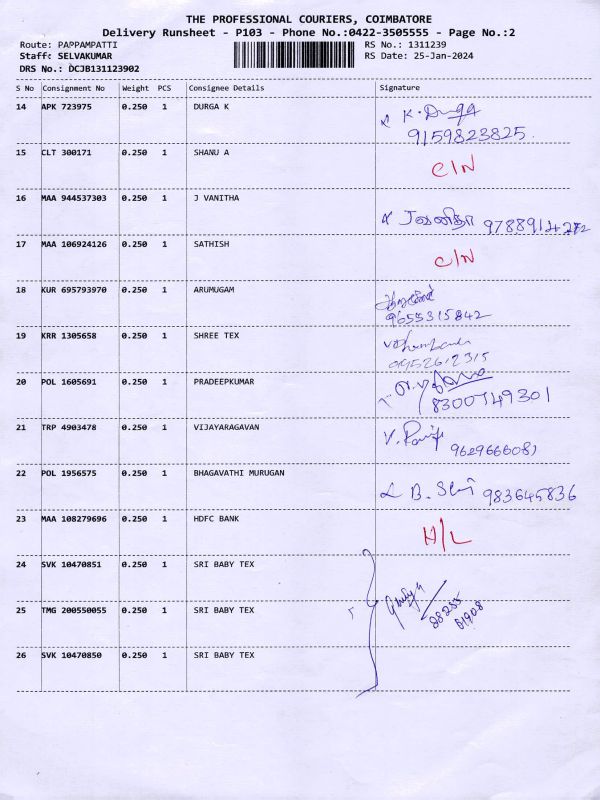 THE PROFESSIONAL COURIERS, COIMBATORE
Delivery Runsheet - P103 - Phone No.:0422-3505555 - Page No.:2
Route: PAPPAMPATTI RS No.: 1311239
Staff: SELVAKUMAR RS Date: 25-Jan-2024
DRS No.: DCJB131123902
S No Consignment No Weight PCS Consignee Details Signature
14 APK 723975 0.250 1 DURGA K K. Durga
9159823825.
15 CLT 300171 0.250 1 SHANU A C/N
16 MAA 944537303 0.250 1 J VANITHA Jவனிதா
17 MAA 106924126 0.250 1 SATHISH C/N
18 KUR 695793970 0.250 1 ARUMUGAM
9655315842
19 KRR 1305658 0.250 1 SHREE TEX
9952612315
20 POL 1605691 0.250 1 PRADEEPKUMAR
21 TRP 4903478 0.250 1 VIJAYARAGAVAN V.
9629666081
22 POL 1956575 0.250 1 BHAGAVATHI MURUGAN B. 983645836
23 MAA 108279696 0.250 1 HDFC BANK H/L
24 SVK 10470851 0.250 1 SRI BABY TEX
25 TMG 200550055 0.250 1 SRI BABY TEX
28255
61908
26 SVK 10470850 0.250 1 SRI BABY TEX